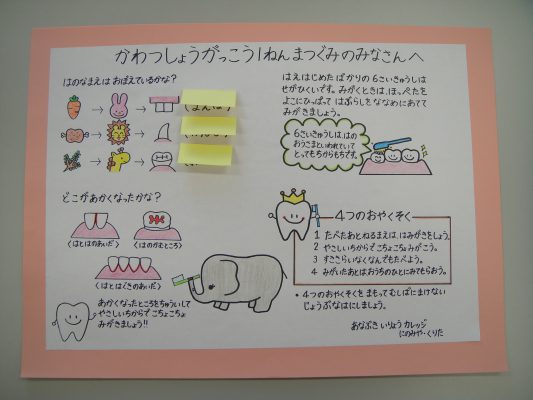 かわつしょうがっこう1ねんまつぐみのみなさんへ
はのなまえは おぼえているかな?
どこがあかくなったかな?
〈はとはのあいだ〉
〈はのかむところ〉
〈はとはぐきのあいだ〉
あかくなったところをちゅういして
やさしいちからで こちょこちょ
みがきましょう!!
はえはじめたばかりの 6さいきゅうしは
せがひくいです。みがくときは、ほっぺたを
よこにひっぱって はぶらしをななめにあてて
みがきましょう。
6さいきゅうしは、はの
おうさまといわれていて
とってもちからもちです。
4つのおやくそく
1 たべたあとねるまえは はみがきをしよう。
2 やさしいちからで こちょこちょみがこう。
3 すききらいなくなんでもたべよう。
4 みがいたあとはおうちのひとにみてもらおう。
• 4つのおやくそくを まもってむしばにまけない
じょうぶなはにしましょう。
あなぶき いりょう カレッジ
にのみや・くりた